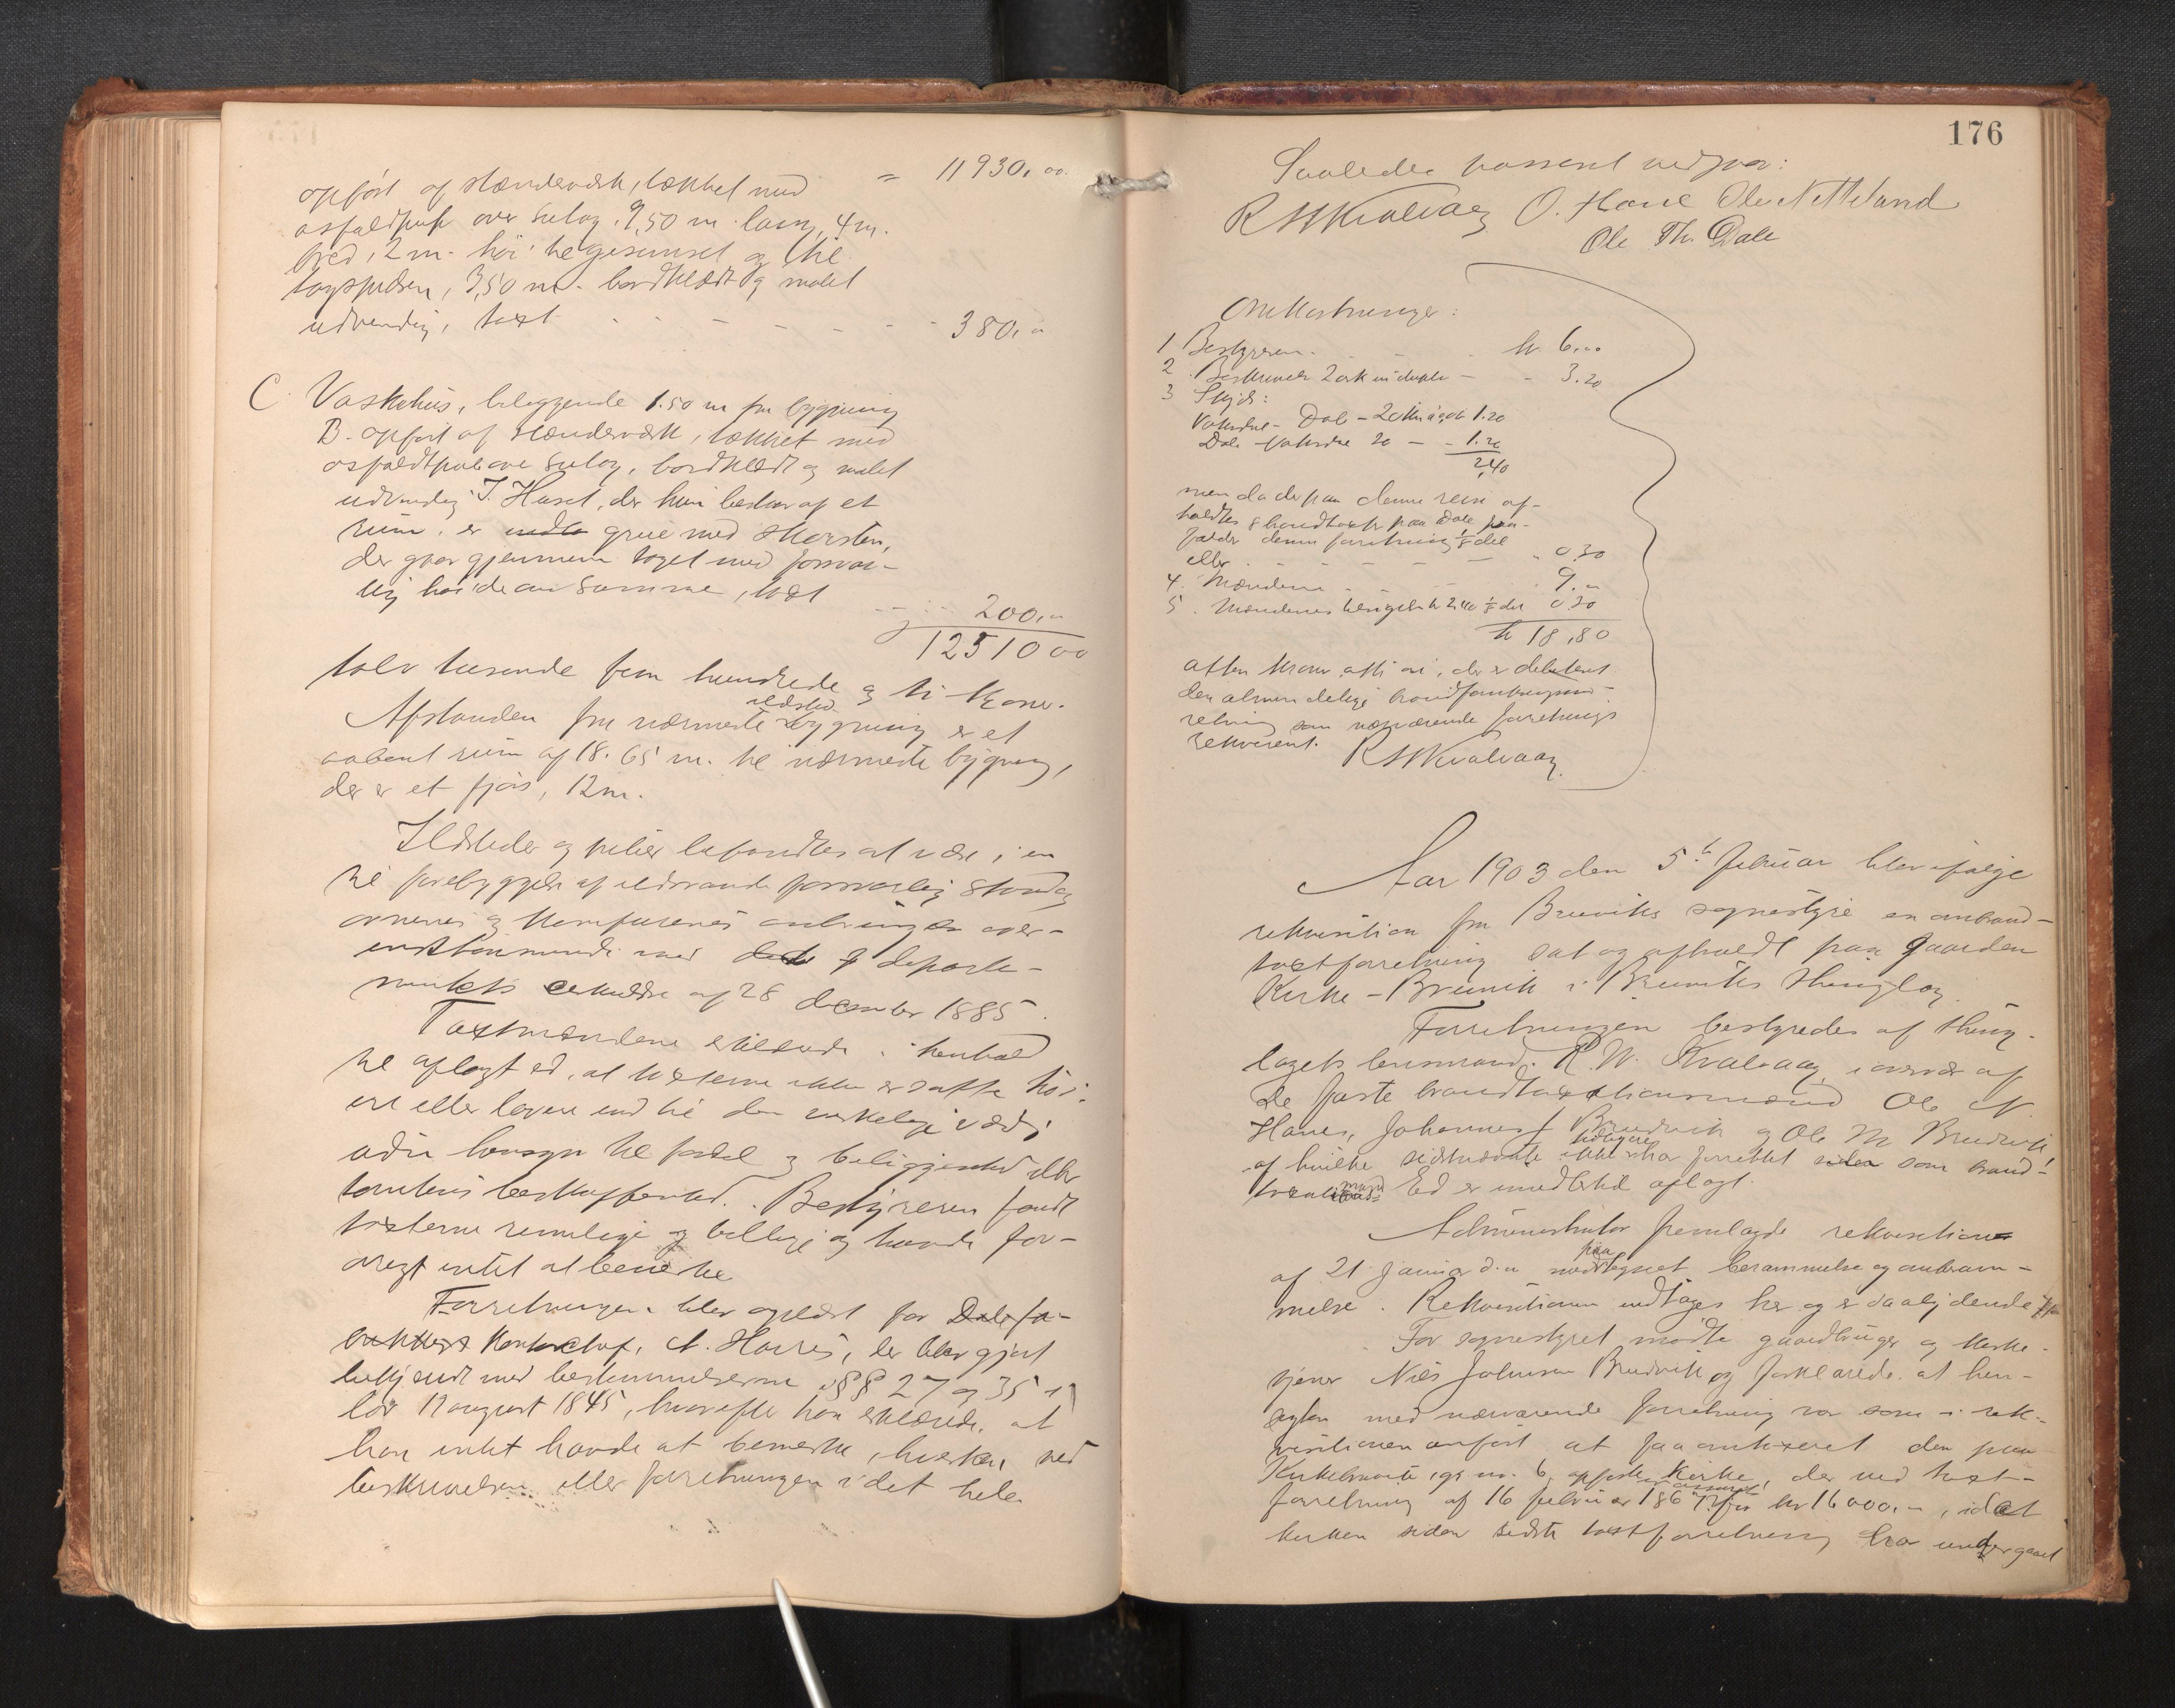 = 11930,00
opført af stænderværk, tækket med
asfaldtpap over sutag, 9,50 m. lang, 4 m.
bred, 2 m. høi til gesimset og til
tagspidsen, 3,50 m. bordklædt og malet
udvendig, taxt - - - - - - 380,00
C Vaskehus, beliggende 1.50 m fra bygning
B. opført af stænderværk, tækket med
asfaldtpap over sutag, bordklædt og malet
udvendig. I Huset, der kun bestaar af et
rum, er grue med skorsten,
der gaar gjennem taget med forsvar-
lig høide over samme, taxt
- - - 200,00
12510 00
tolv tusende fem hundrede og ti kroner.
Afstanden fra nærmeste ildsted bygning er et
aabent rum af 18.65 m. til nærmeste bygning,
der er et fjøs, 12 m.
Ildsteder og piber befandtes at være i en
til forebyggelse af ildsvaade forsvarlig stand og
ovnenes og komfurenes anbringelse over-
ensstemmende med departe-
mentets cirkulære af 28 december 1885.
Taxtmændene erklærede i henhold
til aflagt ed, at taxterne ikke er satte høi-
ere eller lavere end til den virkelige værdi
uden hensyn til fordel og beliggenhed eller
tomtens beskaffenhed. Bestyreren fandt
taxterne rimelige og billige og havde for-
øvrigt intet at bemerke
Forretningen blev oplæst for Dale fa-
brikkers Kontorchef, A. Harris, der blev gjort
bekjendt med bestemmelserne i §§ 27 og 35 i
lov 19 august 1845, hvorefter han erklærede, at
han intet havde at bemerke, hverken ved
beskrivelsen eller forretningen i det hele
176
Saaledes passeret vedgaar:
R W Kvalvaag O. Havre Ole Netteland
Ole Th. Dale
Omkostninger:
1 Bestyreren. - - - kr 6,00
2 Beskrivelse 2 ark in duplo - - 3.20
3 Skyds:
Vaksdal - Dale - 20 km 1.20
Dale - Vaksdal 20 - - 1.20
2,40
men da der paa denne reise af-
holdtes 8 brandtaxter paa Dale paa-
falder denne forretning 1/8 del
eller - - - - - " 0.30
4. Mændene - - - - 9.00
5. Mændenes kr 2,40 1/8 del 0.30
kr 18,80
atten kroner, otti øre, der er debiteret
den almindelige brandforsikringsind-
retning som nærværende forretnings
rekvirent. R W Kvalvaag
Aar 1903 den 5te februar blev ifølge
rekvisition fra Bruviks sognestyre en ombrand-
taxtforretning sat og afholdt paa gaarden
Kirke-Bruvik i Bruviks thinglag.
Forretningen bestyredes af thing-
lagets lensmand R. W. Kvalvaag i overvær af
de faste brandtaxtationsmænd Ole N.
Havre, Johannes J Bruvik og Ole M Bruvik,
af hvilke sidstnævnte ikke tidligere har forrettet som brand-
taxtmand. Ed er imidlertid aflagt.
Administrator fremlagde rekvisition
af 21 januar d.a. med paategnet berammelse og ombram-
melse. Rekvisitionen indtages her og er saalydende
For sognestyret mødte gaardbruger og kirke-
tjener Nils Johnsen Bruvik og forklarede, at hen-
sigten med nærværende forretning var som i rek-
visitionen anført at faa omtaxeret den paa
Kirkebruvik, gr no. 6, opførte Kirke, der ved taxt-
forretning af 16 februar 1867 assureret for kr 16000,-, idet
kirken siden sidste taxtforretning har undergaaet